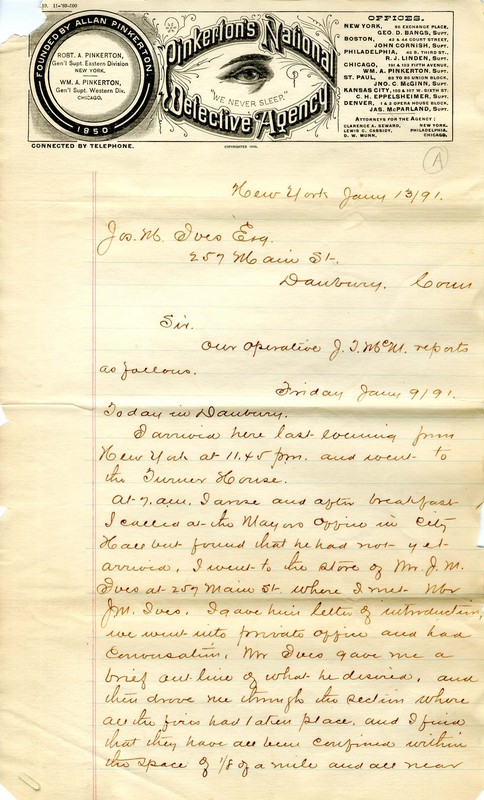 FOUNDED BY ALLAN PINKERTON.
ROBT. A. PINKERTON,
Gen'l Supt. Eastern Division
NEW YORK.
WM. A. PINKERTON,
Gen'l Supt. Western Div.
CHICAGO.
1850
CONNECTED BY TELEPHONE.
Pinkerton's National
"WE NEVER SLEEP."
Detective Agency
OFFICES.
NEW YORK, 66 EXCHANGE PLACE,
GEO. D. BANGS, SUPT.
BOSTON, 42 & 44 COURT STREET,
JOHN CORNISH, SUPT.
PHILADELPHIA, 45 S. THIRD ST.,
R. J. LINDEN, SUPT.
CHICAGO, 191 & 193 FIFTH AVENUE,
WM. A. PINKERTON, SUPT.
ST. PAUL, 85 TO 90 UNION BLOCK,
JNO. C. McGINN, SUPT.
KANSAS CITY, 105 & 107 W. SIXTH ST.
C. H. EPPELSHEIMER, SUPT.
DENVER, 1 & 2 OPERA HOUSE BLOCK,
JAS. McPARLAND, SUPT.
ATTORNEYS FOR THE AGENCY:
CLARENCE A. SEWARD, NEW YORK.
LEWIS C. CASSIDY, PHILADELPHIA,
D. W. MUNN, CHICAGO.
A
New York Jany 13/91.
Jos. M. Ives Esq.
257 Main St.
Danbury. Conn
Sir.
Our operative J. T. McM. reports
as follows.
Friday Jany 9/91.
Today in Danbury.
I arrived here last evening from
New York at 11.45 p.m. and went to
the Turner House.
At 7. a.m. I arose and after breakfast
I called at the Mayors Office in City
Hall but found that he had not yet
arrived. I went to the store of Mr. J. M.
Ives at 257 Main St. where I met Mr
J.M. Ives. I gave him letter of introduction,
we went into private office and had
conversation. Mr Ives gave me a
brief out line of what he desired, and
then drove me through the section where
all the fires had taken place, and I find
that they have all been confined within
the space of 1/8 of a mile and all near